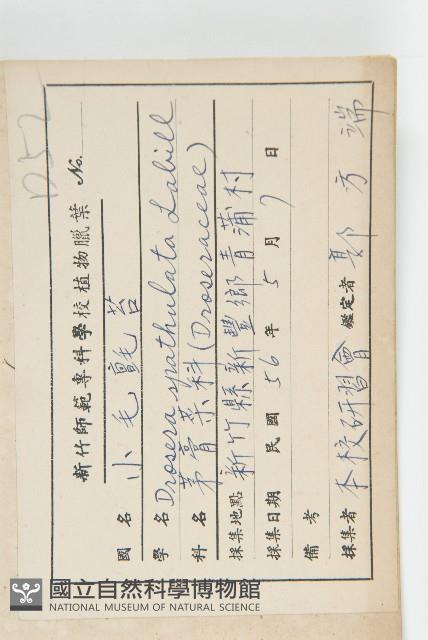 D52
新竹師範專科學校植物臘葉 No.
國名 小毛氈苔
學名 Drosera spathulata Labill
科名 茅膏菜科(Droseraceae)
採集地點 新竹縣新豐鄉青蒲村
採集日期 民國 56 年 5 月 7 日
備考
採集者 本校研習會 鑑定者 鄭方端
國立自然科學博物館
NATIONAL MUSEUM OF NATURAL SCIENCE